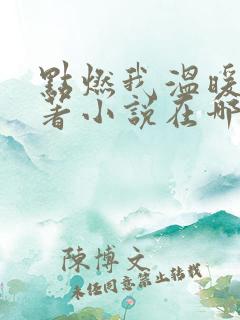 點燃我溫暖
著小說在哪
陳博文
未经同意禁止转载